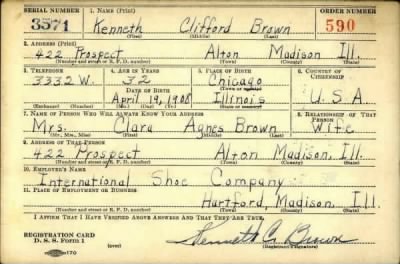 SERIAL NUMBER 1. NAME (Print) ORDER NUMBER
3571 Kenneth Clifford Brown 590
(First) (Middle) (Last)
2. ADDRESS (Print)
422 Prospect Alton Madison Ill.
(Number and street or R. F. D. number) (Town) (County) (State)
3. TELEPHONE 4. AGE IN YEARS 5. PLACE OF BIRTH 6. COUNTRY OF CITIZENSHIP
3332 W. 32 Chicago
DATE OF BIRTH (Town or county)
April 19, 1908 Illinois U.S.A.
(Exchange) (Number) (Mo.) (Day) (Yr.) (State or country)
7. NAME OF PERSON WHO WILL ALWAYS KNOW YOUR ADDRESS 8. RELATIONSHIP OF THAT PERSON
Mrs. Clara Agnes Brown Wife
(Mr., Mrs., Miss) (First) (Middle) (Last)
9. ADDRESS OF THAT PERSON
422 Prospect Alton Madison, Ill.
(Number and street or R. F. D. number) (Town) (County) (State)
10. EMPLOYER'S NAME
International Shoe Company
11. PLACE OF EMPLOYMENT OR BUSINESS
Hartford, Madison, Ill.
(Number and street or R. F. D. number) (Town) (County) (State)
I AFFIRM THAT I HAVE VERIFIED ABOVE ANSWERS AND THAT THEY ARE TRUE.
REGISTRATION CARD
D. S. S. Form 1 (over) Kenneth C. Brown
170 (Registrant's signature)